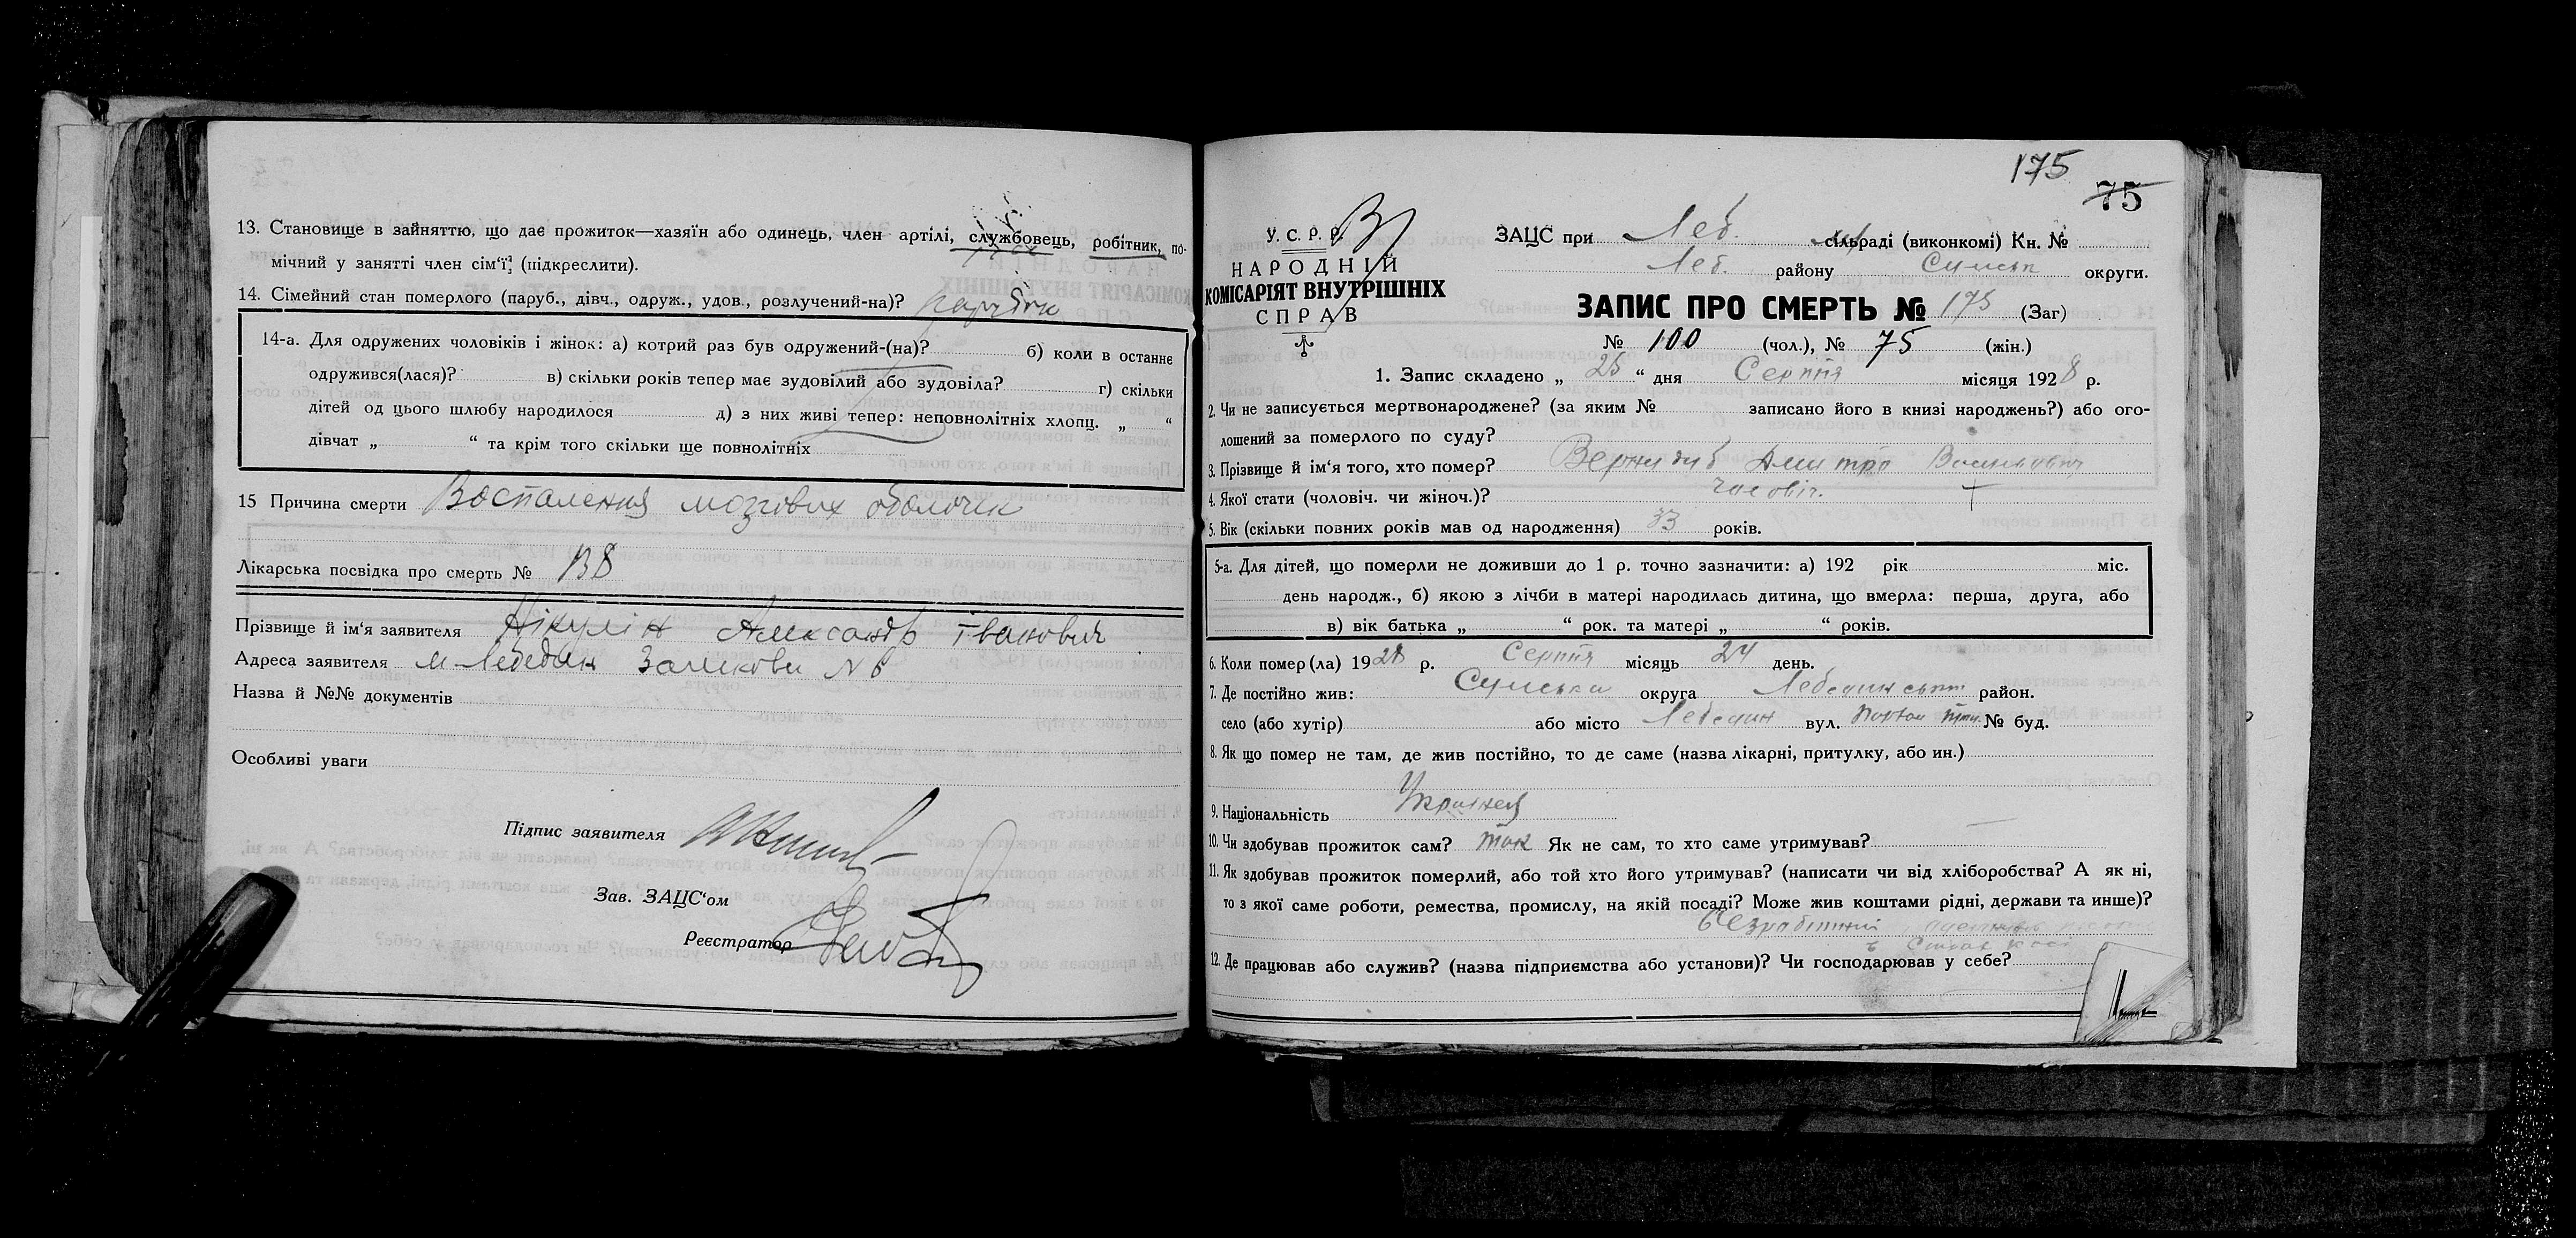 13. Становище в зайняттю, що дає прожиток—хазяїн або одинець, член артілі, службовець, робітник, по-
мічний у занятті член сім'ї, (підкреслити).
14. Сімейний стан померлого (паруб., дівч., одруж., удов., розлучений-на)? парубок
14-а. Для одружених чоловіків і жінок: а) котрий раз був одружений-(на)? б) коли в останнє
одружився(лася)? в) скільки років тепер має зудовілий або зудовіла? г) скільки
дітей од цього шлюбу народилося д) з них живі тепер: неповнолітніх хлопц. „ “
дівчат „ “ та крім того скільки ще повнолітніх
15 Причина смерти Воспалення мозгових оболочек
Лікарська посвідка про смерть №
Прізвище й ім'я заявителя Нікулін Александр Іванович
Адреса заявителя м-Лебедин №
Назва й №№ документів
Особливі уваги
Підпис заявителя
Зав. ЗАЦС'ом
Реєстратор
175
75
У. С. Р. Р.
НАРОДНІЙ
КОМІСАРІЯТ ВНУТРІШНІХ
СПРАВ
ЗАЦС при Леб. сільраді (виконкомі) Кн. №
Леб. району Сумськ округи.
ЗАПИС ПРО СМЕРТЬ № 175 (Заг)
№ 100 (чол.), № 75 (жін.)
1. Запис складено „ 25 “ дня Серпня місяця 1928 р.
2. Чи не записується мертвонароджене? (за яким № записано його в книзі народжень?) або ого-
лошений за померлого по суду?
3. Прізвище й ім'я того, хто помер? Вернидуб Дмитро Васильович
4. Якої стати (чоловіч. чи жіноч.)? чоловіч.
5. Вік (скільки повних років мав од народження) 33 років.
5-а. Для дітей, що померли не доживши до 1 р. точно зазначити: а) 192 рік міс.
день народж., б) якою з лічби в матері народилась дитина, що вмерла: перша, друга, або
в) вік батька „ “ рок. та матері „ “ років.
6. Коли помер(ла) 1928 р. Серпня місяць 24 день.
7. Де постійно жив: Сумська округа Лебединськ район.
село (або хутір) або місто Лебедин вул. № буд.
8. Як що помер не там, де жив постійно, то де саме (назва лікарні, притулку, або ин.)
9. Національність Українец
10. Чи здобував прожиток сам? так Як не сам, то хто саме утримував?
11. Як здобував прожиток померлий, або той хто його утримував? (написати чи від хліборобства? А як ні,
то з якої саме роботи, ремества, промислу, на якій посаді? Може жив коштами рідні, держави та инше)?
безробітний
12. Де працював або служив? (назва підприємства або установи)? Чи господарював у себе?